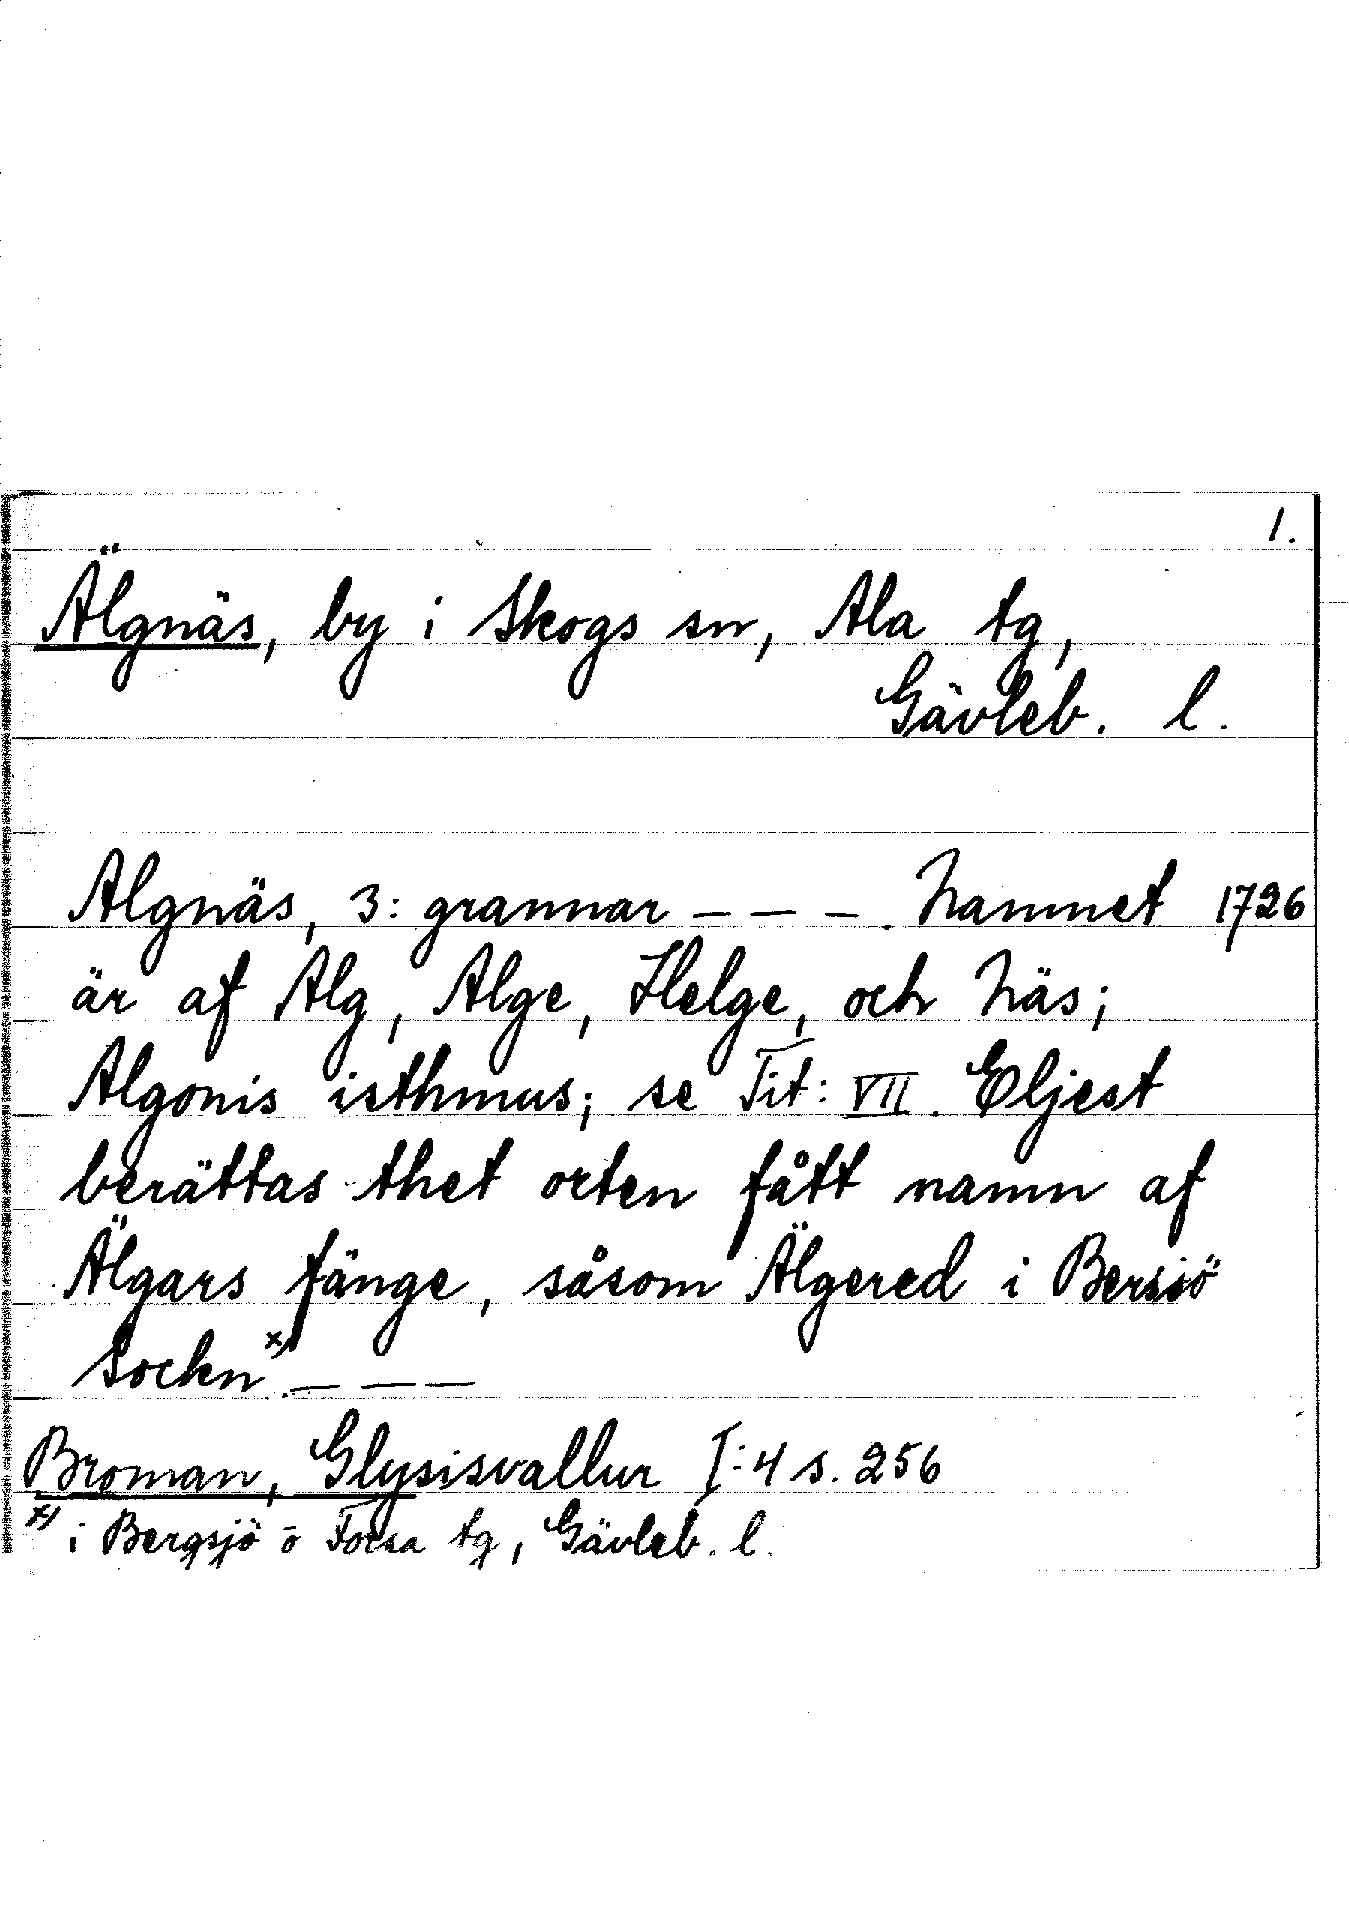 1.
Älgnäs, by i Skogs sn, Ala tg,
Gävleb. l.
Algnäs, 3: grannar – – – . Namnet 1726
är af Alg, Alge, Helge, och Näs;
Algonis isthmus; se Tit: VII. Eljest
berättas thet orten fått namn af
Älgars fänge, såsom Älgered i Bersiö
Sockn x) – – –
Broman, Glysisvallur I:4 s. 256
x) i Bergsjö o Forsa tg, Gävleb. l.